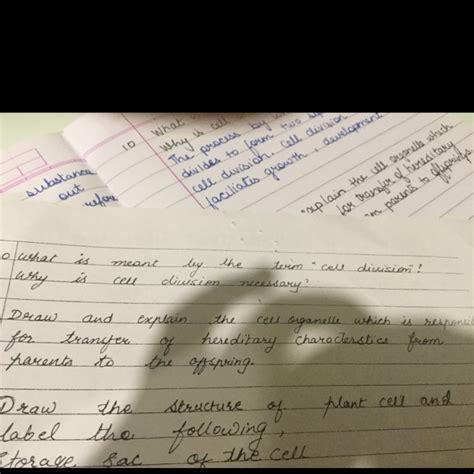 10 What
Why is cell
The process by
divides to form two
cell division. Cell division
faciliates growth, development
substance
out
explain the cell organelle which
for transfer of hereditary
parents to offsprings
o What is meant by the term "cell division"?
Why is cell division necessary?
Draw and explain the cell organelle which is responsi
for transfer of hereditary characteristics from
parents to the offspring.
Draw the structure of plant cell and
label the following,
Storage sac of the cell